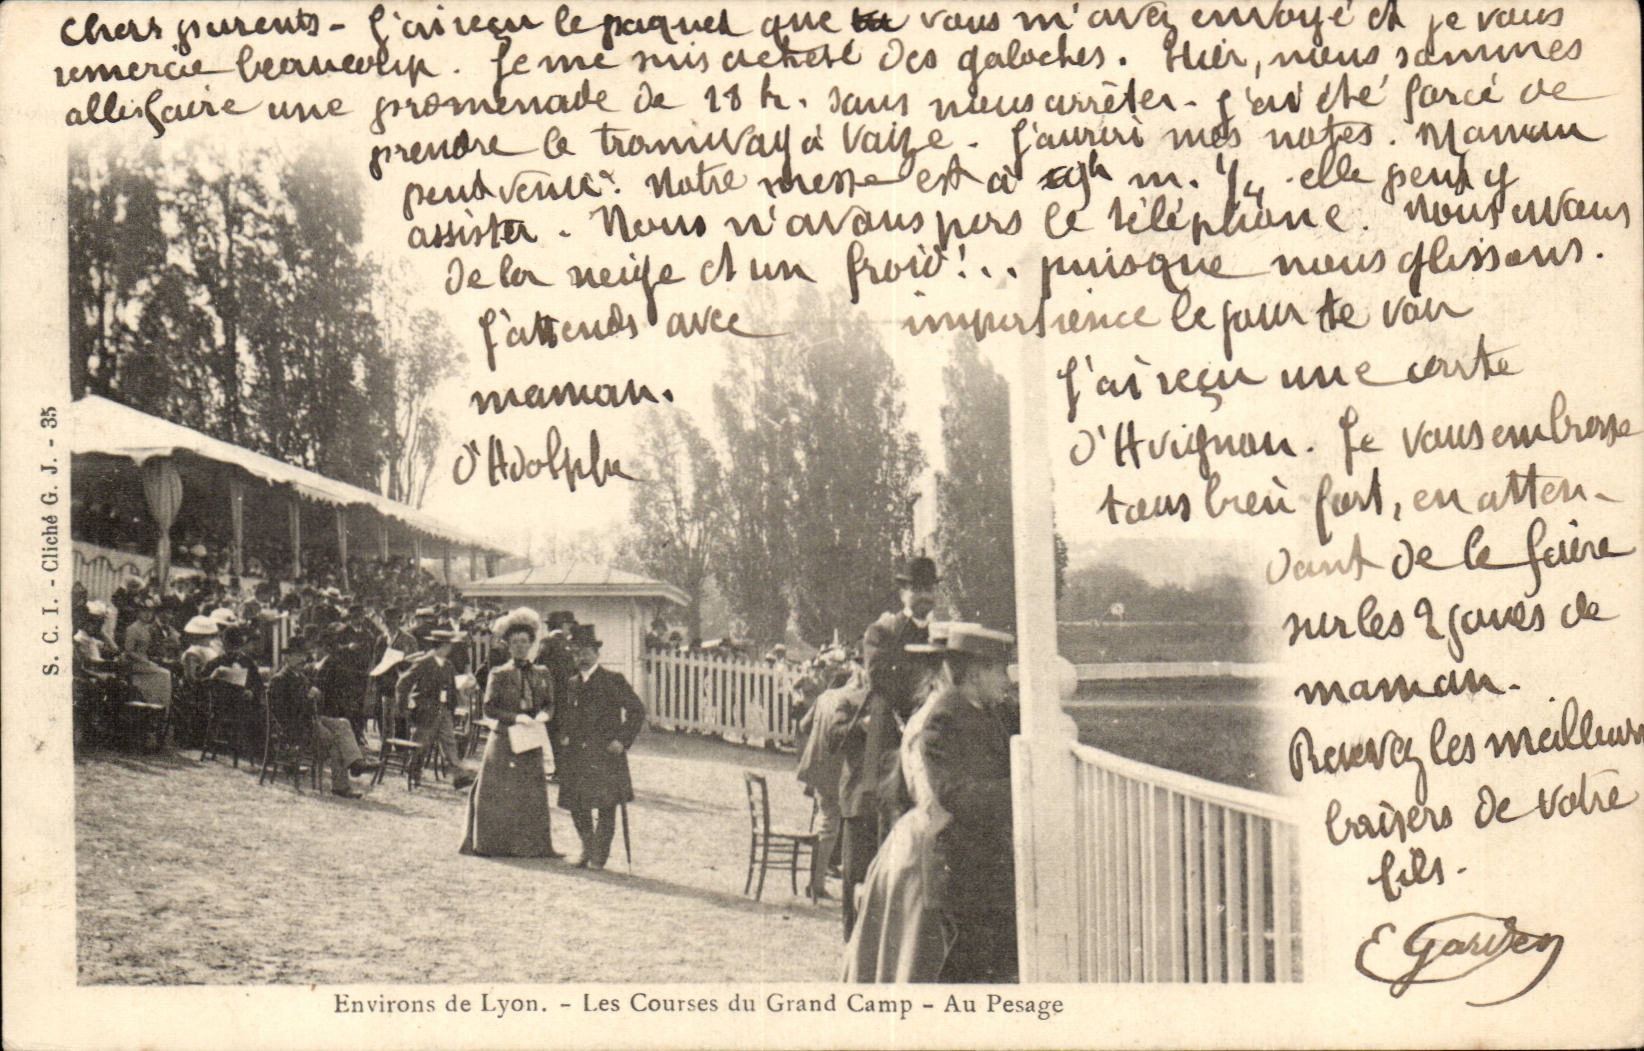 Chers parents - J'ai reçu le paquet que vous m'avez envoyé et je vous
remercie beaucoup. Je me suis acheté des galoches. Hier, nous sommes
allés faire une promenade de 18 k. sans nous arrêter. J'ai été forcé de
prendre le tramway à Vaize. J'aurai mes notes. Maman
peut venir. Notre messe est à m. 1/4 elle peut y
assister. Nous n'avons pas le téléphone. Nous avons
de la neige et un froid!.. puisque nous glissons.
J'attends avec impatience le jour de voir
maman.
J'ai reçu une carte
d'Adolphe
d'Avignon. Je vous embrasse
tous bien fort, en atten-
dant de le faire
sur les 2 joues de
maman.
Recevez les meilleurs
baisers de votre
fils.
E
S. C. I. - Cliché G. J. - 35
Environs de Lyon. - Les Courses du Grand Camp - Au Pesage